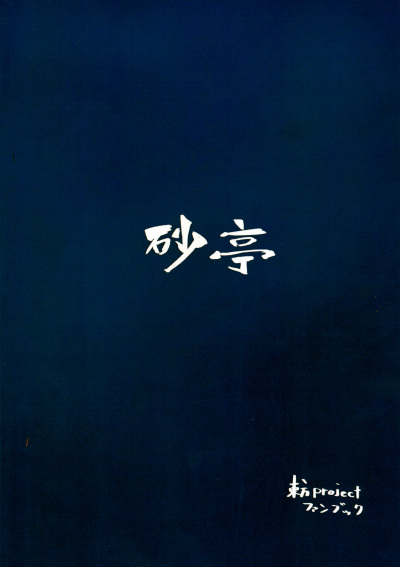 砂亭
東方project
ファンブック